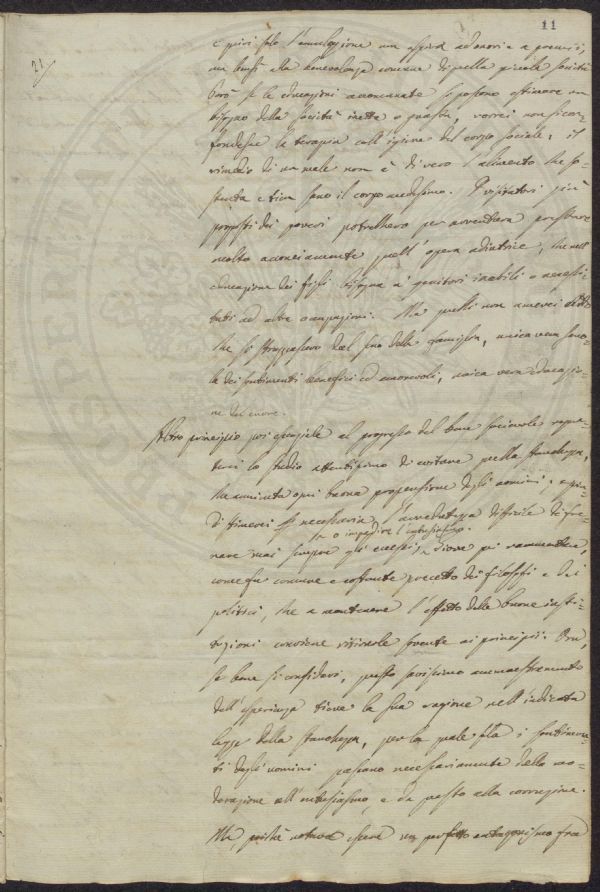 11
21
e quivi solo l'emulazione non aspira ad onori e a premii,
ma bensì alla benevolenza comune di quella piccola società
Però se le educazioni accennate si possono estimare un
bisogno della società inetta o guasta, vorrei non si con-
fondesse la terapia coll'igiene del corpo sociale; il
rimedio di un male non è di vero l'alimento che so-
stenta e tien sano il corpo medesimo. I visitatori già
proposti dei poveri potrebbero per avventura prestare
molto acconciamente quell'opera adiutrice, che nell'
educazione dei figli bisogna a' genitori inabili o necessi-
tati ad altre occupazioni. Ma quelli non amerei
che si strappassero dal seno della famiglia, unica vera scuo-
la dei sentimenti benefici ed amorevoli, unica vera educazio-
ne del cuore.
Altro principio poi essenziale al progresso del bene sociale repu-
terei lo studio attentissimo di evitare quella stanchezza,
che ammenta ogni buona propensione degli uomini; e quin-
di stimerei necessaria l'avvedutezza difficile di fre-
o impedire l'entusiasmo.
nare mai sempre gli eccessi, Giova qui rammentare,
come fu comune e costante precetto dei filosofi e dei
politici, che a mantenere l'effetto delle buone insti-
tuzioni conviene ritirarle sovente ai principii. Ora,
se bene si consideri, questo savissimo ammaestramento
dell'esperienza tiene la sua ragione nell'indicata
legge della stanchezza, per la quale i sentimen-
ti degli uomini passano necessariamente dalla mo-
derazione all'entusiasmo, e da questo alla corruzione.
Ma, poichè essere un perfetto antagonismo fra